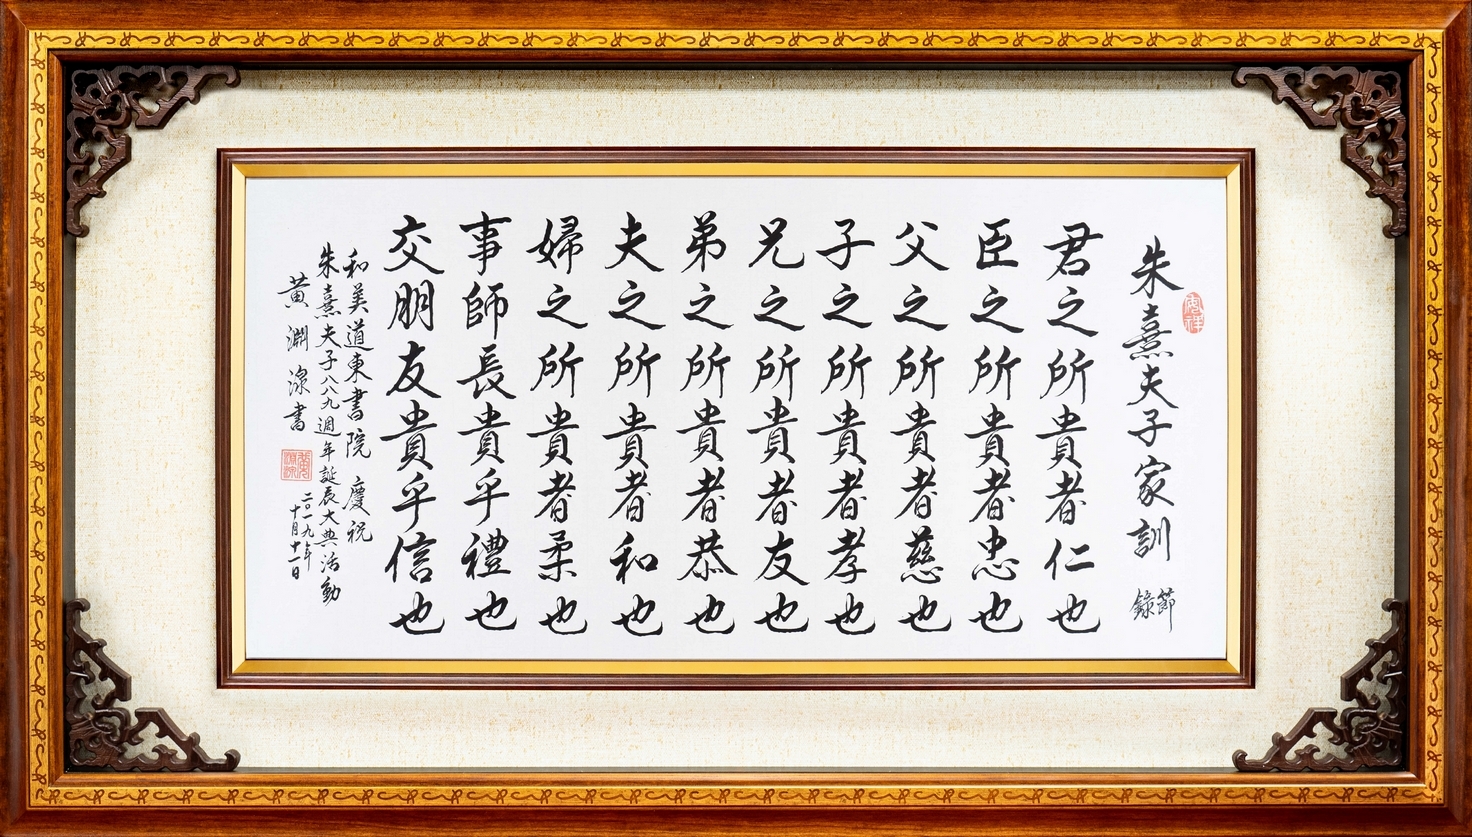 朱熹夫子家訓 節錄
君之所貴者仁也
臣之所貴者忠也
父之所貴者慈也
子之所貴者孝也
兄之所貴者友也
弟之所貴者恭也
夫之所貴者和也
婦之所貴者柔也
事師長貴乎禮也
交朋友貴乎信也
和美道東書院 慶祝
朱熹夫子八八九週年誕辰大典活動
黃淵源書
二〇一九年
十月十一日